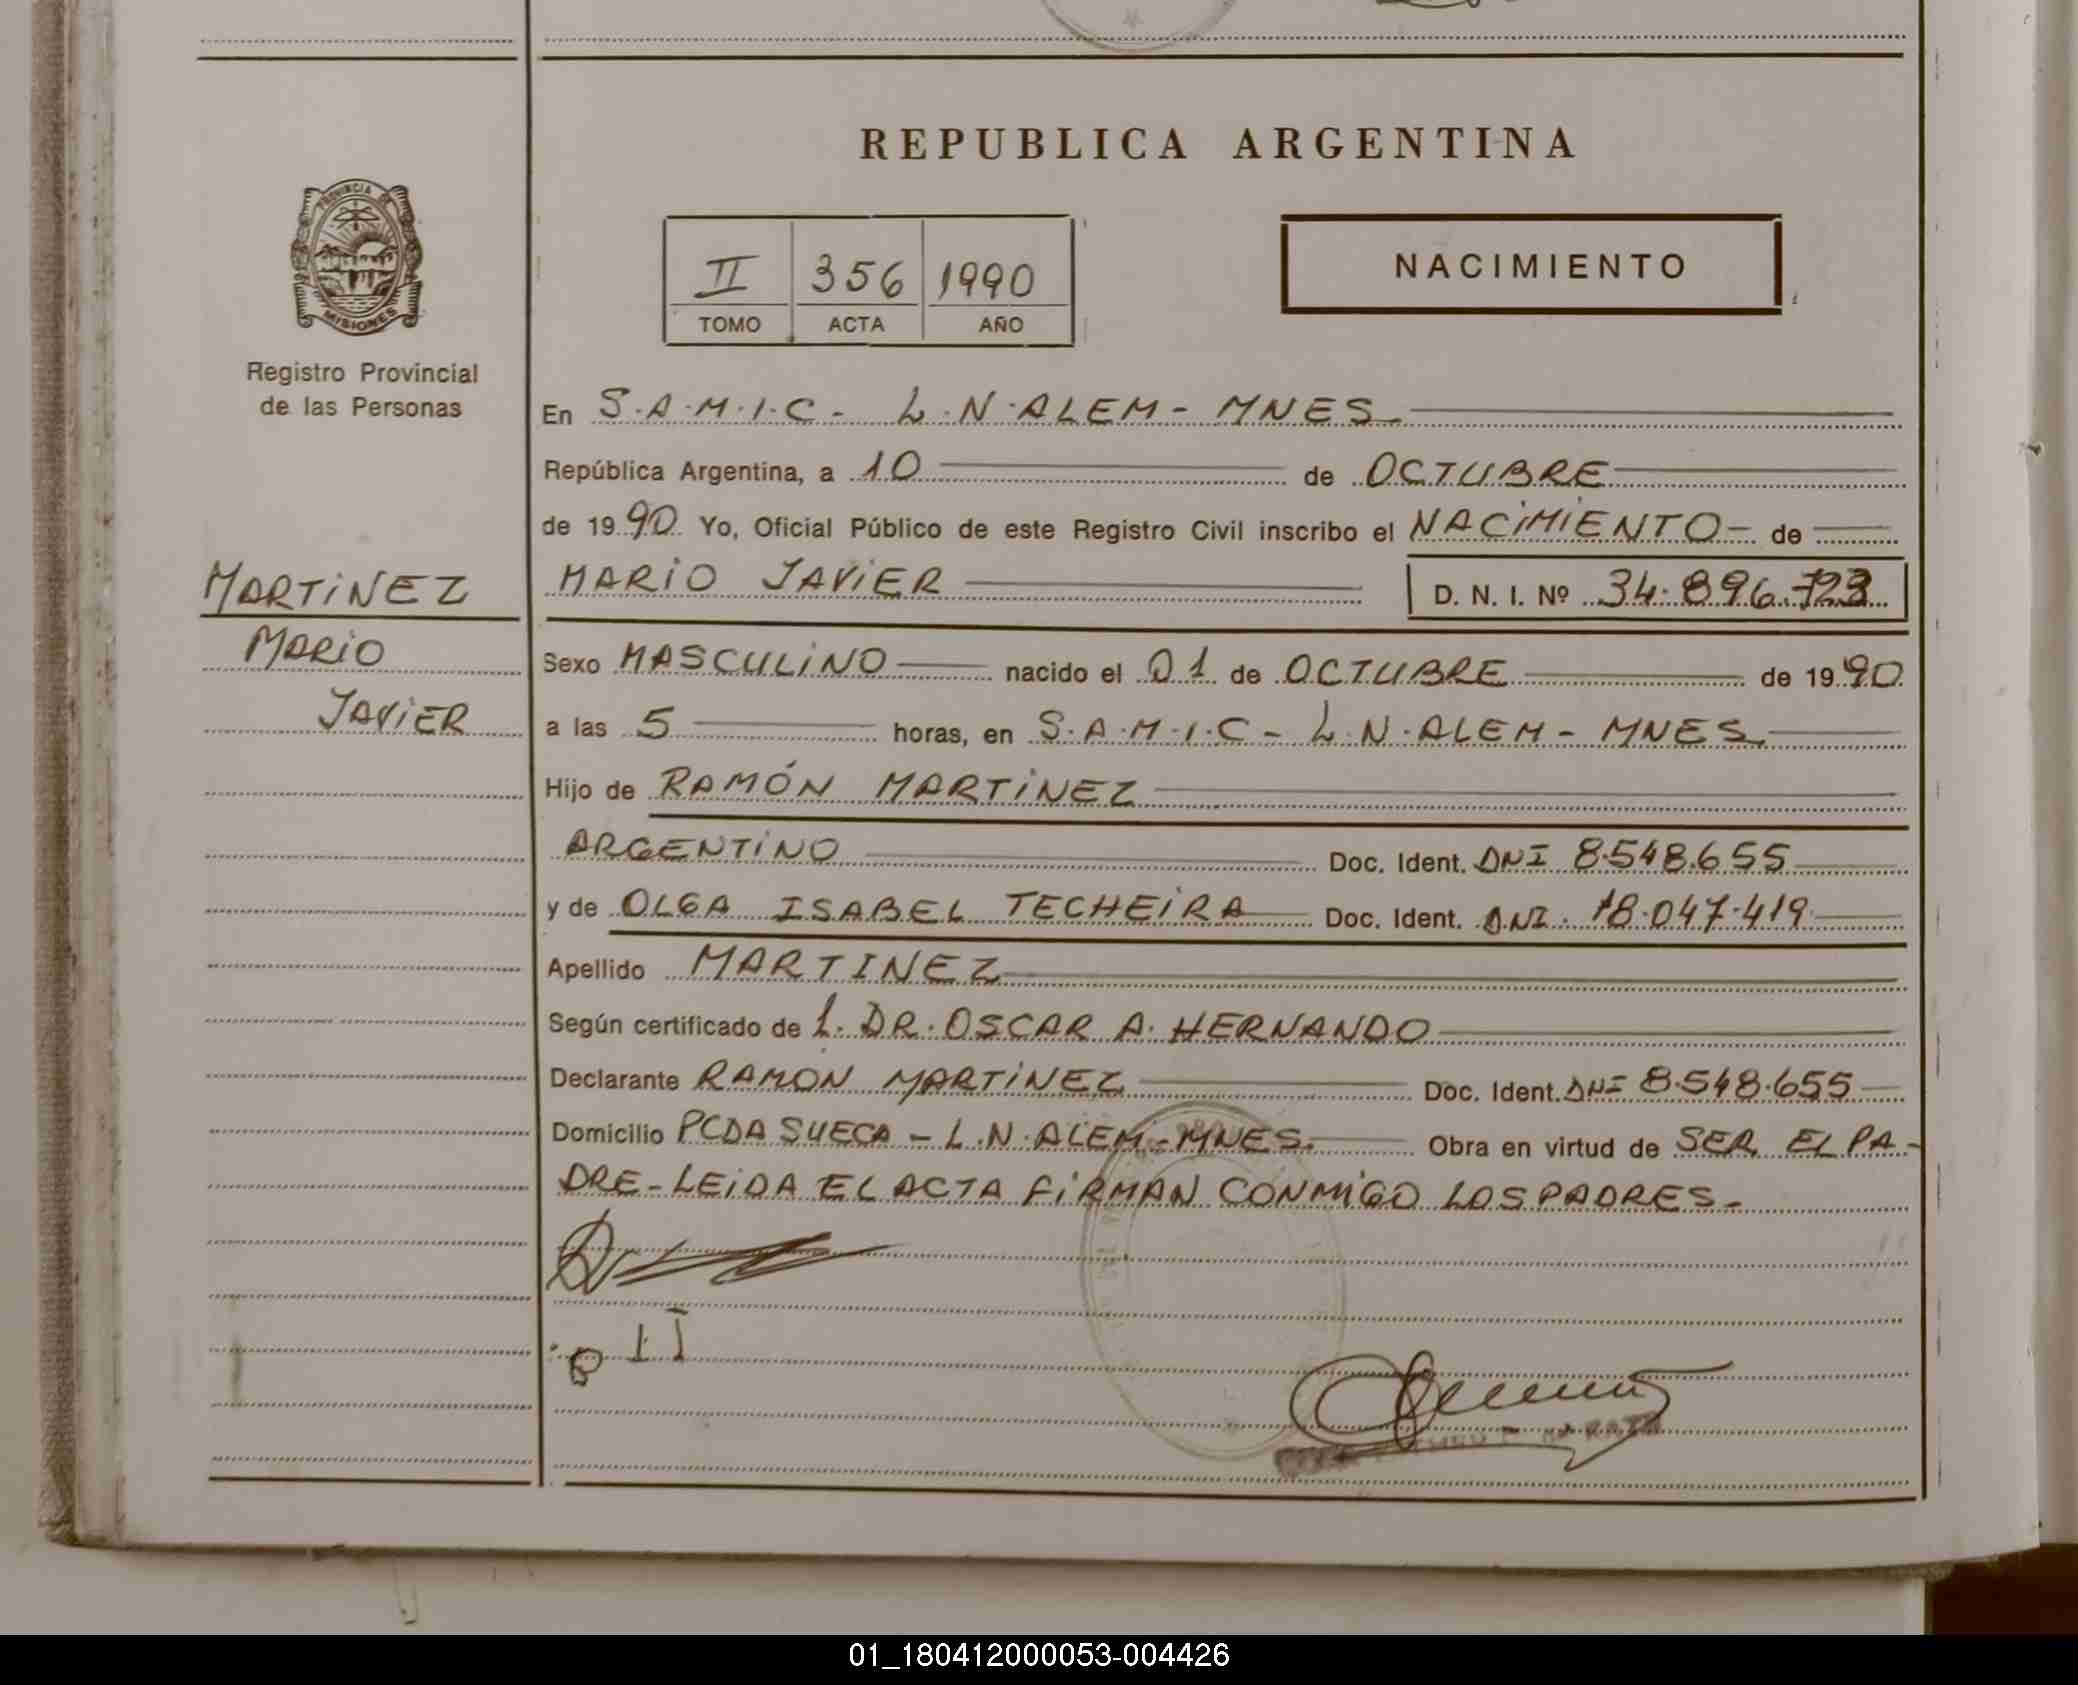 REPUBLICA ARGENTINA
PROVINCIA DE
MISIONES
Registro Provincial
de las Personas
II 356 1990
TOMO ACTA AÑO
NACIMIENTO
En S.A.M.I.C- L.N.ALEM- MNES-
República Argentina, a 10 de OCTUBRE
de 1990 Yo, Oficial Público de este Registro Civil inscribo el NACIMIENTO- de
MARTINEZ
MARIO
JAVIER
MARIO JAVIER D. N. I. Nº 34.896.723
Sexo MASCULINO nacido el 01 de OCTUBRE de 1990
a las 5 horas, en S.A.M.I.C- L.N.ALEM- MNES
Hijo de RAMÓN MARTINEZ
ARGENTINO Doc. Ident. DNI 8.548.655
y de OLGA ISABEL TECHEIRA Doc. Ident. DNI. 18.047.419
Apellido MARTINEZ
Según certificado de L. DR. OSCAR A. HERNANDO
Declarante RAMON MARTINEZ Doc. Ident. DNI 8.548.655
Domicilio PCDA SUECA - L.N.ALEM-MNES. Obra en virtud de SER EL PA-
DRE-LEIDA EL ACTA FIRMAN CONMIGO LOS PADRES-
01_180412000053-004426